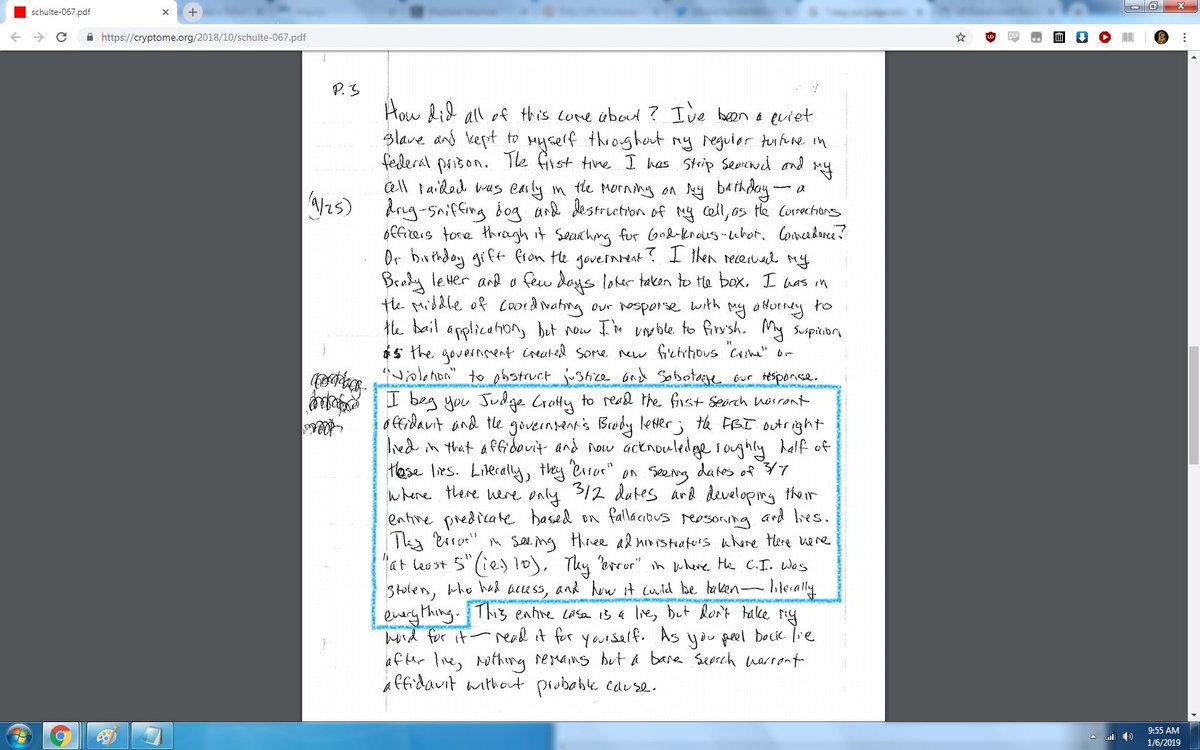 schulte-067.pdf
https://cryptome.org/2018/10/schulte-067.pdf
P.3
How did all of this come about? I've been a quiet
slave and kept to myself throughout my regular torture in
federal prison. The first time I was strip searched and my
cell raided was early in the morning on my birthday — a
(9/25)
drug-sniffing dog and destruction of my cell, as the corrections
officers tore through it searching for God-knows-what. Coincidence?
Or birthday gift from the government? I then received my
Brady letter and a few days later taken to the box. I was in
the middle of coordinating our response with my attorney to
the bail application, but now I'm unable to finish. My suspicion
is the government created some new fictitious "crime" or
"violation" to obstruct justice and sabotage our response.
I beg you Judge Crotty to read the first search warrant
affidavit and the government's Brady letter; the FBI outright
lied in that affidavit and now acknowledge roughly half of
these lies. Literally, they "error" on seeing dates of 3/7
where there were only 3/2 dates and developing their
entire predicate based on fallacious reasoning and lies.
They "error" in seeing three administrators where there were
"at least 5" (i.e.) 10). They "error" in where the C.I. was
stolen, who had access, and how it could be taken — literally
everything. This entire case is a lie, but don't take my
word for it — read it for yourself. As you peel back lie
after lie, nothing remains but a bare search warrant
affidavit without probable cause.
9:55 AM
1/6/2019